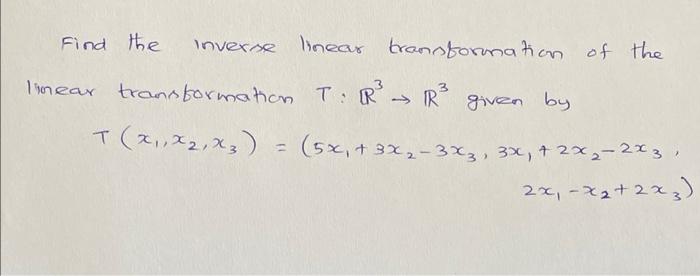 Find the inverse linear transformation of the
linear transformation T : ℝ³ → ℝ³ given by
T (x₁, x₂, x₃) = (5x₁ + 3x₂ - 3x₃, 3x₁ + 2x₂ - 2x₃,
2x₁ - x₂ + 2x₃)